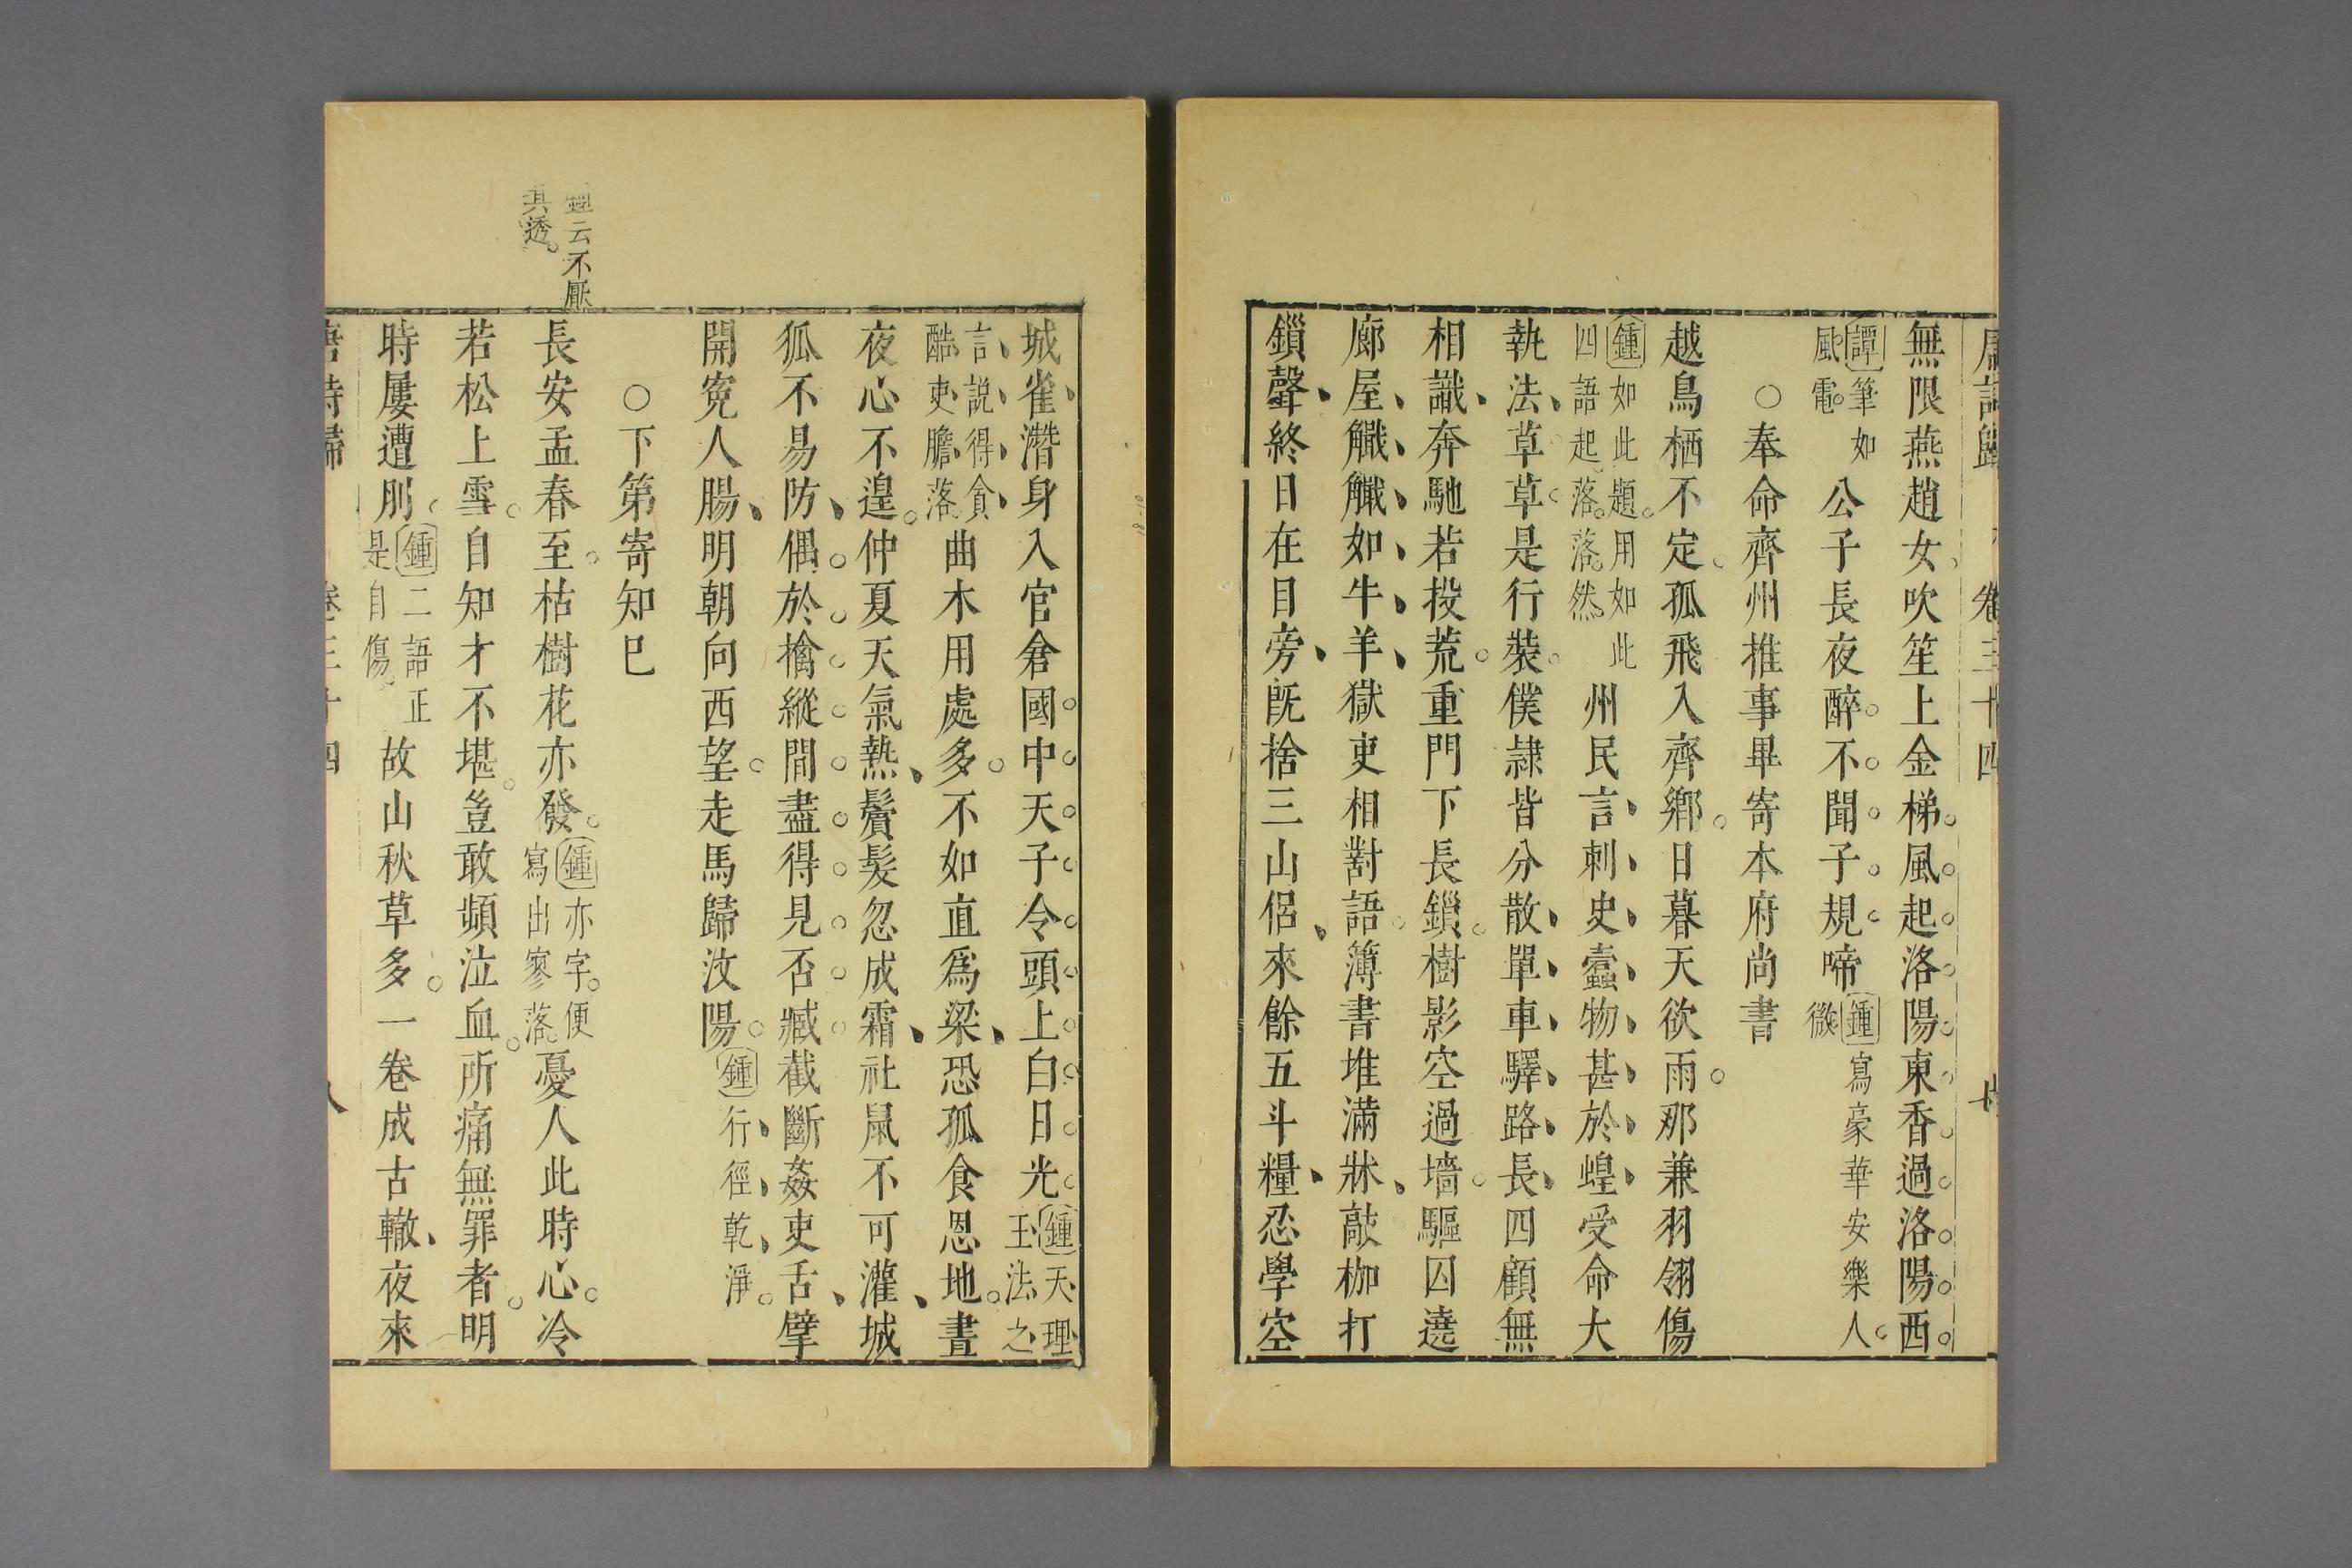 唐詩歸 卷三十四
無限燕趙女吹笙上金梯風起洛陽東香過洛陽西
譚筆如
風電
公子長夜醉不聞子規啼
鍾寫豪華安樂人
微
○奉命齊州推事畢寄本府尚書
越鳥栖不定孤飛入齊鄉日暮天欲雨那兼羽翎傷
鍾如此題用如此
四語起落落然
州民言刺史蠹物甚於蝗受命大
執法草草是行裝僕隷皆分散單車驛路長四顧無
相識奔馳若投荒重門下長鎖樹影空過墻驅囚遶
廊屋觵觵如牛羊獄吏相對語簿書堆滿牀敲枷打
鎖聲終日在目旁旣捨三山侶來餘五斗糧忍學空
城雀潛身入官倉國中天子令頭上白日光
鍾天理
王法之
言說得貪
酷吏膽落
曲木用處多不如直爲梁恐孤食恩地晝
夜心不遑仲夏天氣熱鬢髮忽成霜社鼠不可灌城
狐不易防偶於擒縱間盡得見否臧截斷姦吏舌擘
開寃人腸明朝向西望走馬歸汶陽
鍾行徑乾淨
○下第寄知己
鍾云不厭
其透
長安孟春至枯樹花亦發
鍾亦字便
寫出寥落
憂人此時心冷
若松上雪自知才不堪豈敢頻泣血所痛無罪者明
時屢遭刖
鍾二語正
是自傷
故山秋草多一卷成古轍夜來
唐詩歸 卷三十四 八